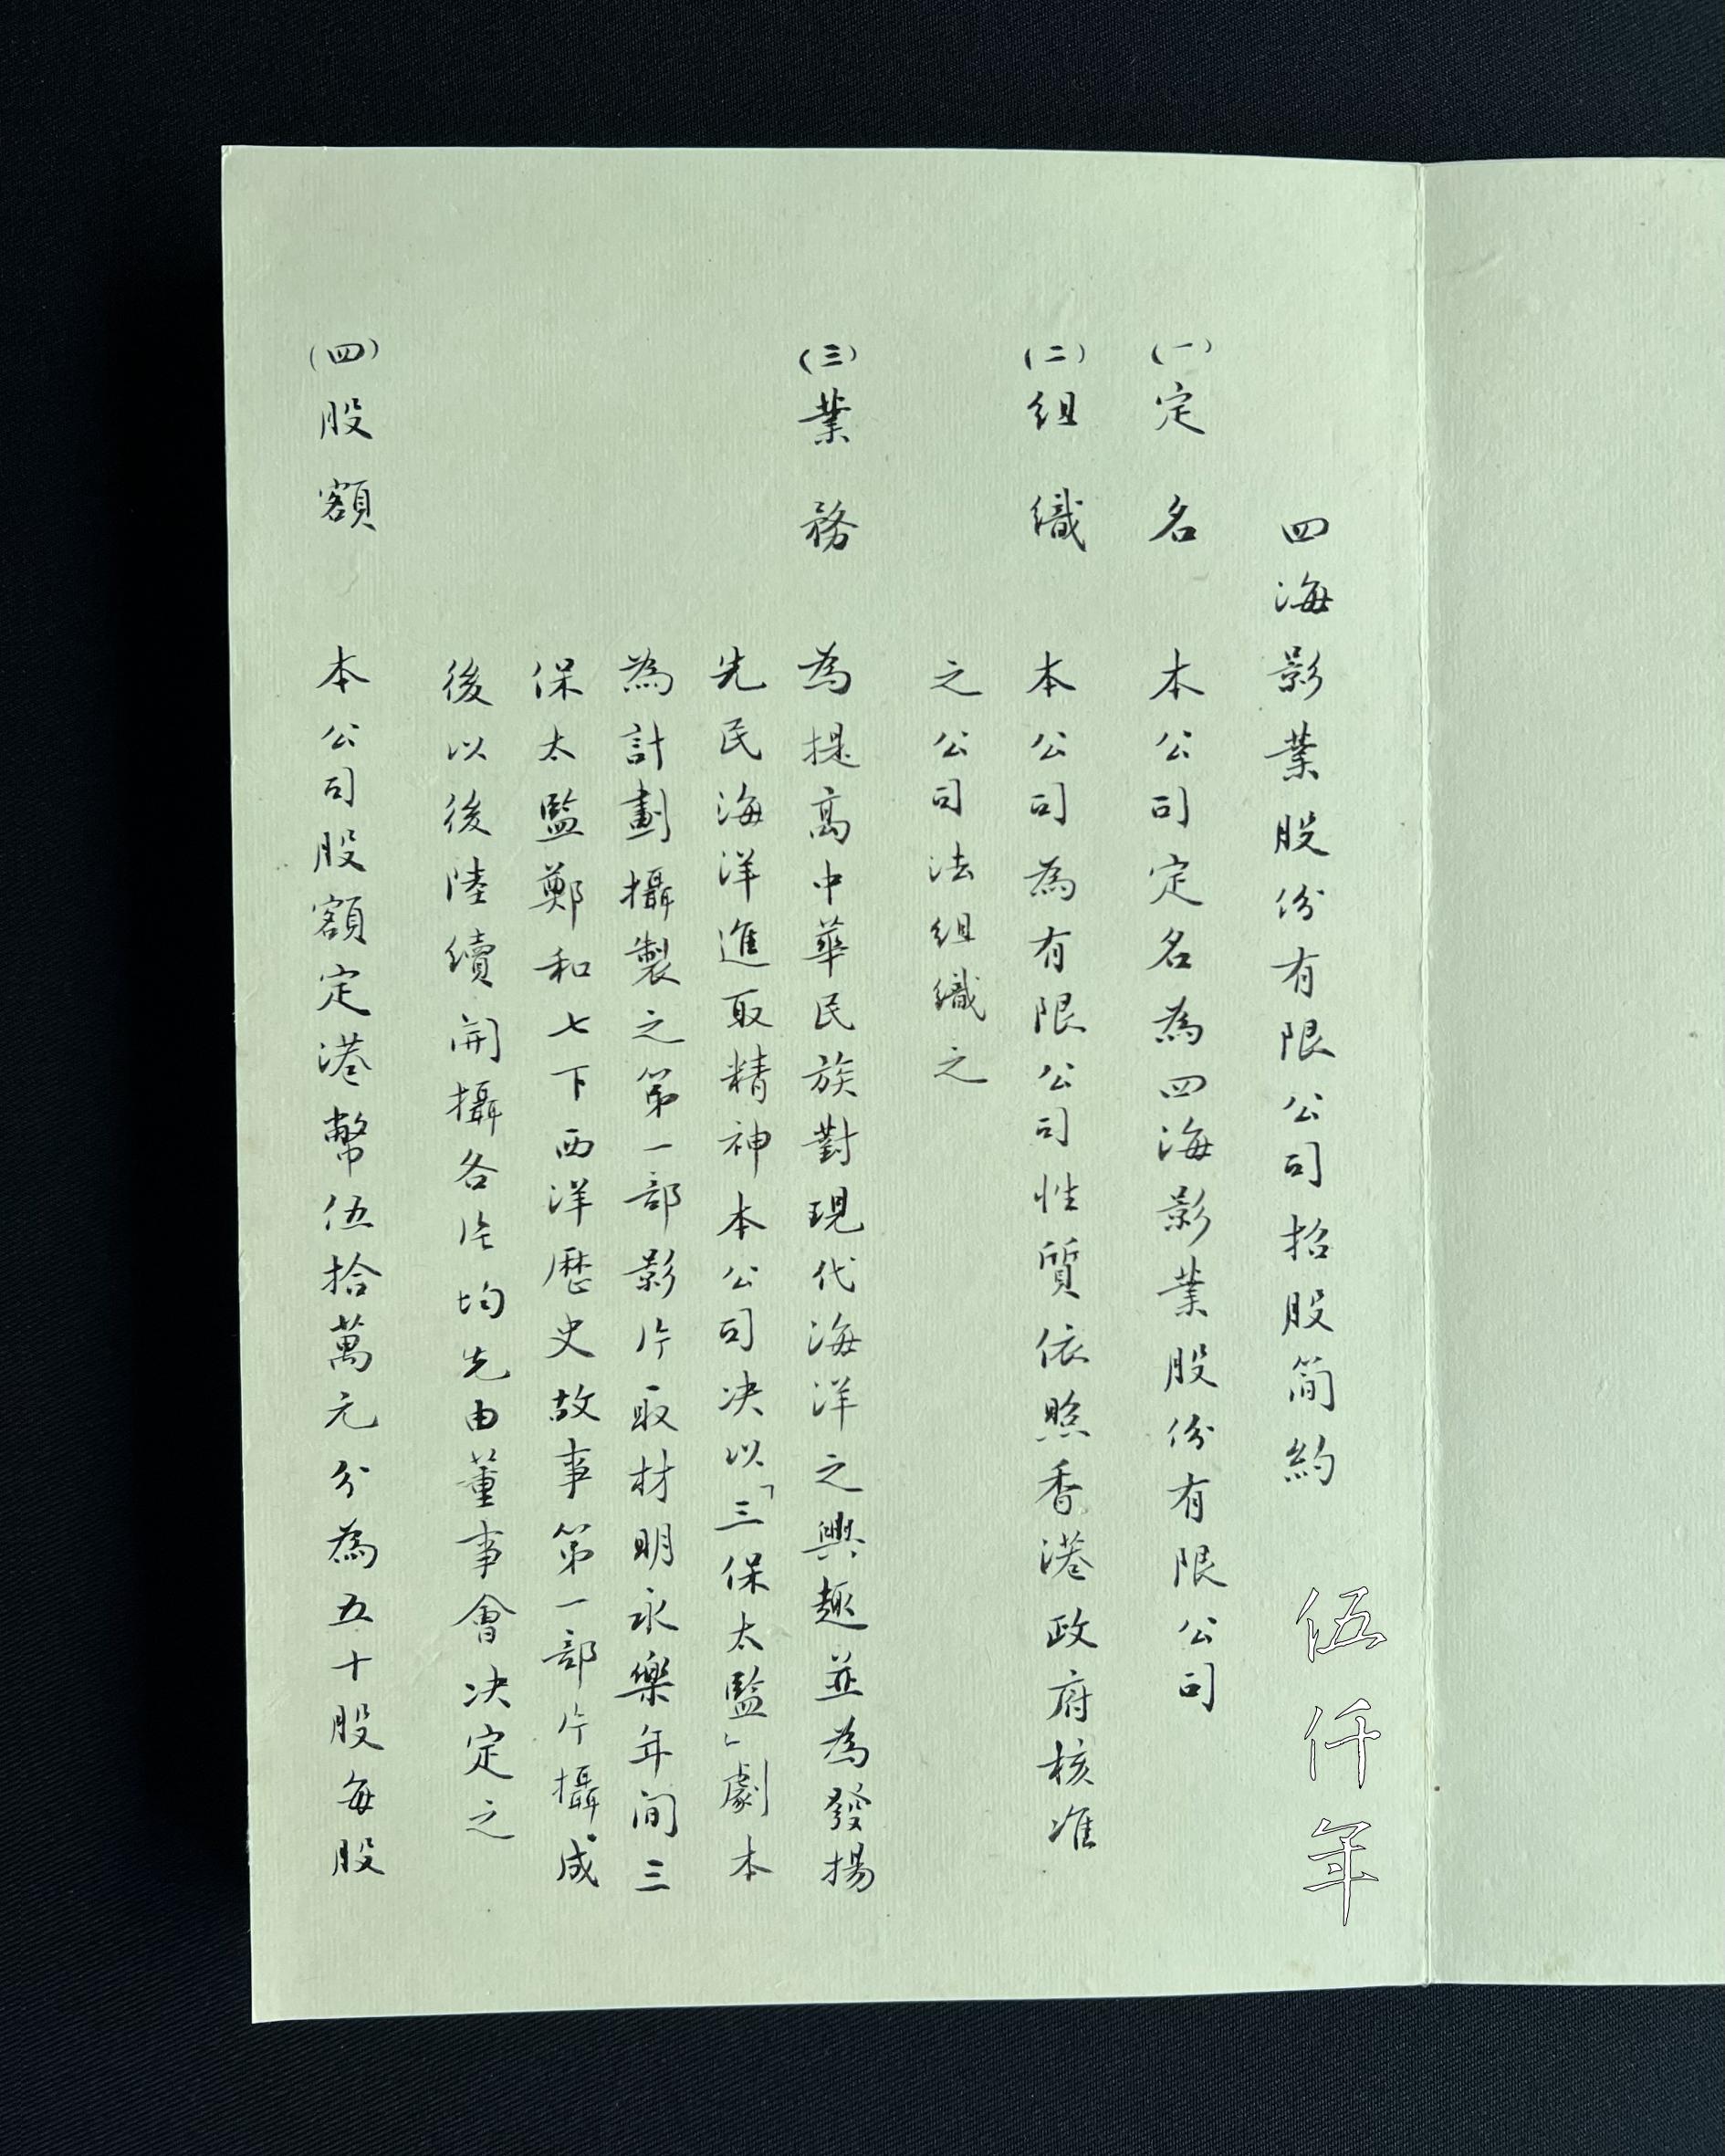 四海影業股份有限公司招股简約
(一)定名 本公司定名為四海影業股份有限公司
(二)組織 本公司為有限公司性質依照香港政府核准
之公司法組織之
(三)業務 為提高中華民族對現代海洋之興趣並為發揚
先民海洋進取精神本公司决以「三保太監」劇本
為計劃攝製之第一部影片取材明永樂年间三
保太監鄭和七下西洋歷史故事第一部片攝成
後以後陸續開攝各片均先由董事會决定之
(四)股額 本公司股額定港幣伍拾萬元分為五十股每股
伍仟年